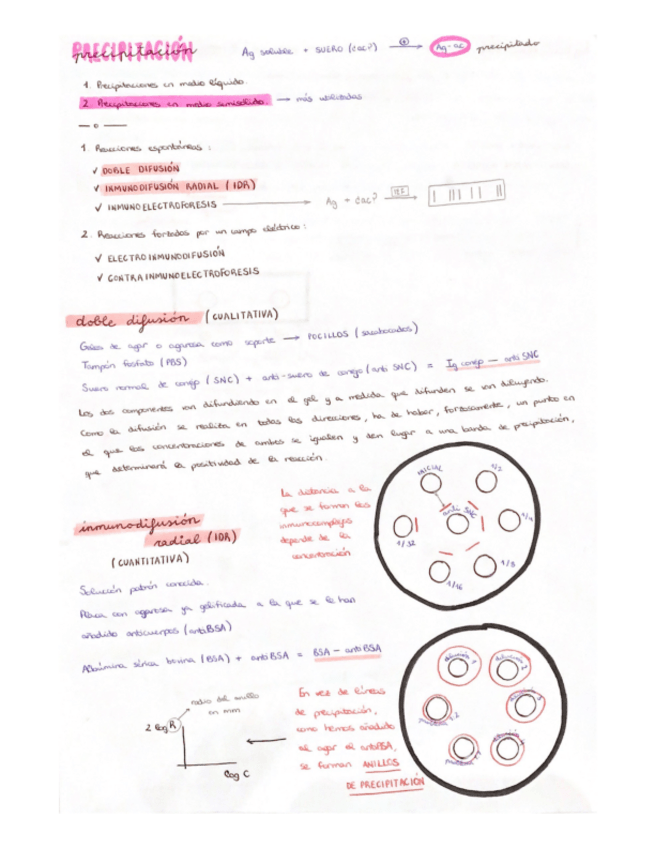 PRECIPITACIÓN
precipitación
Ag soluble + SUERO (¿ac?) → Ag-ac precipitado
1. Precipitaciones en medio líquido.
2. Precipitaciones en medio semisólido → más utilizadas
1. Reacciones espontáneas:
✓ DOBLE DIFUSIÓN
✓ INMUNODIFUSIÓN RADIAL (IDR)
✓ INMUNOELECTROFORESIS → Ag + ¿ac? →
2. Reacciones forzadas por un campo eléctrico:
✓ ELECTROINMUNODIFUSIÓN
✓ CONTRAINMUNOELECTROFORESIS
doble difusión (CUALITATIVA)
Geles de agar o agarosa como soporte → POCILLOS (sacabocados)
Tampón fosfato (PBS)
Suero normal de conejo (SNC) + anti-suero de conejo (anti SNC) = Ig conejo — anti SNC
Los dos componentes van difundiendo en el gel y a medida que difunden se van diluyendo.
Como la difusión se realiza en todas las direcciones, ha de haber, forzosamente, un punto en
el que las concentraciones de ambos se igualen y den lugar a una banda de precipitación,
que determinará la positividad de la reacción.
La distancia a la
que se forman los
inmunocomplejos
depende de la
concentración
INICIAL
1/2
anti SNC
1/4
1/32
1/8
1/16
inmunodifusión
radial (IDR)
(CUANTITATIVA)
Solución patrón conocida.
Placa con agarosa ya gelificada a la que se le han
añadido anticuerpos (antiBSA)
Albúmina sérica bovina (BSA) + antiBSA = BSA — antiBSA
radio del anillo
en mm
2 log R
log C
En vez de líneas
de precipitación,
como hemos añadido
al agar el antiBSA,
se forman ANILLOS
DE PRECIPITACIÓN